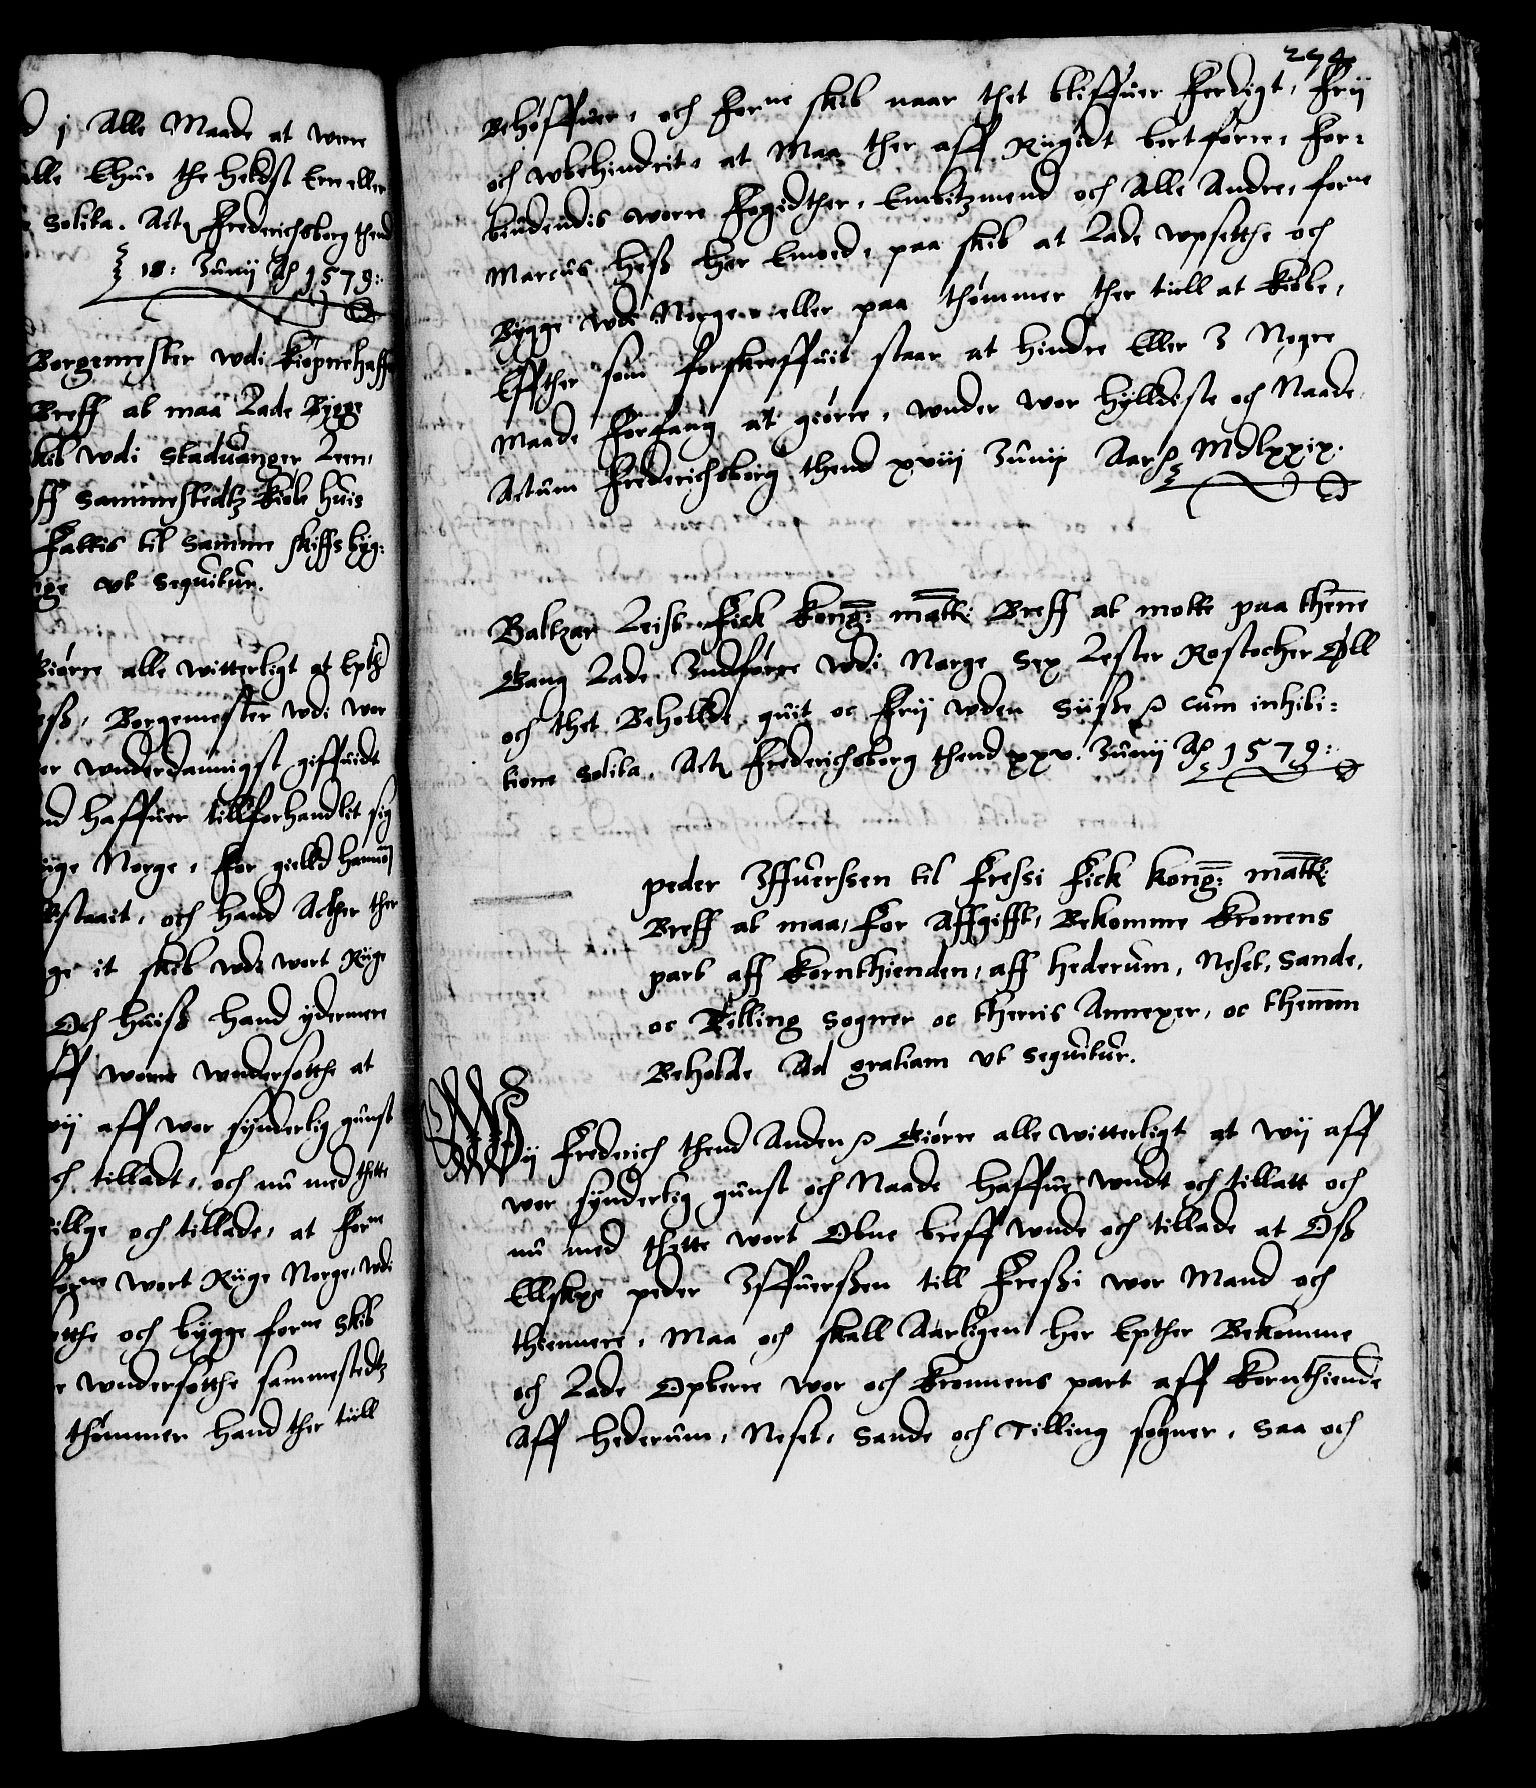 j Alle Maade at were
alle Ehuo the heldst Ere eller
solita. Act Frederichsborg thend
18: Junij Aar 1579:
Borgemester wdi Kiøpnehaff
Breff at maa Lade Bygge
skib wdi Staduanger Leen,
off Sammestedtz Kiøbe huis
Fattis til samme skiffs byg:
ut sequitur.
Giørre alle witterligt at Epth
Borgemester wdi wor
wnderdannigst giffuidt
haffuer tillforhandlit sig
Norge, for gielld hannom
och hand Acther ther
it skib wdi wort Rige
Och huiss hand ydermere
worre wndersotthe at
wij aff wor synderlig gunst
tilladt, och nu med thette
och tillade, at forne
forne wort Rige Norge, wdi
och bygge forne Skib
wndersotthe sammestedtz
thømmer hand ther till
274
Behøffuer, och forne skib naar thet bliffuer Ferdigt, Frij
och wbehindrit, at Maa ther aff Riigidt bortførre, For:
biudendis worre Fogidther, Embitzmend och Alle Andre, forne
Marcus Hess her Emod, paa skib at Lade wpsetthe och
Bygge wdi Norge, eller paa thømmer ther till at Kiøbe,
Effther som forskreffuit staar at hindre Eller J Nogre
Maade Forfang at giørre, wnder wor hylldiste och Naade.
Actum Frederichsborg thend xviij Junij Aar Mdlxxix.
Baltzar Leist Fick Kong: matt: Breff at motte paa thenne
Gang Lade Indførre wdi Norge Sex Lester Rostocher Øll
och thet Beholde quit oc Frij wden Siisse cum inhibi:
tione solita. Act Frederichsborg thend xxv. Junij Aar 1579:
peder Iffuerssen til Fressi Fick Kong: matt:
Breff at maa, For Affgifft, Bekomme Kronens
part aff Kornthienden, aff Hederum, Neset, Sande,
oc Tilling Sogner oc therris Annexer, oc thennom
Beholde Ad gratiam ut sequitur.
Wij Frederich thend Anden Giørre alle witterligt at wij aff
wor synderlig gunst och Naade haffue wndt och tillatt och
nu med thette wort Obne breff wnde och tillade at Oss
Ellskxe peder Iffuerssen till Fressi wor Mand och
thiennere, Maa och skall Aarligen her Epther Bekomme
och Lade Opberre wor och Kronnens part aff Kornthiende
Aff Hederum, Neset, Sande och Tilling sogner, saa och